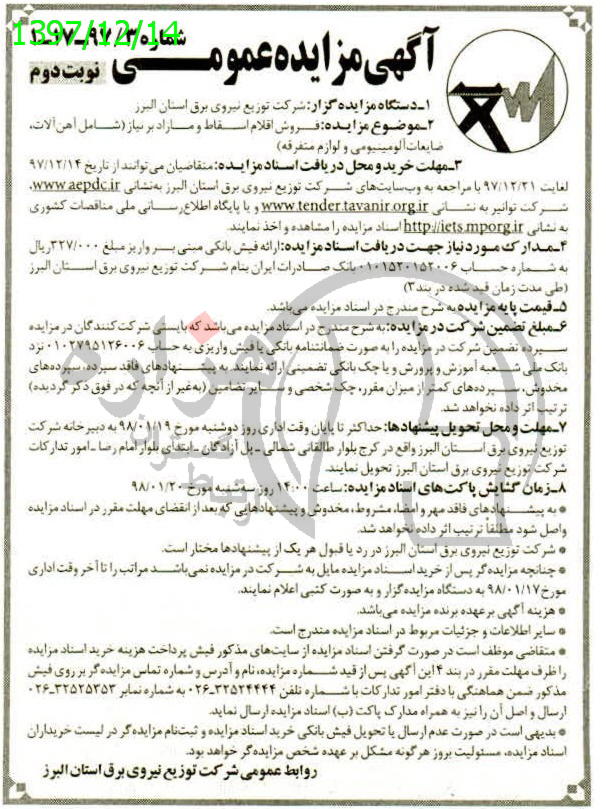 1397/12/14
شماره ۹۷/۳-۹۷-۱
آگهی مزایده عمومی
نوبت دوم
۱-دستگاه مزایده گزار: شرکت توزیع نیروی برق استان البرز
۲-موضوع مزایده: فروش اقلام اسقاط و مازاد بر نیاز (شامل آهن‌آلات،
ضایعات آلومینیومی و لوازم متفرقه)
۳-مهلت خرید و محل دریافت اسناد مزایده: متقاضیان می‌توانند از تاریخ ۹۷/۱۲/۱۴
لغایت ۹۷/۱۲/۲۱ با مراجعه به وب‌سایت‌های شرکت توزیع نیروی برق استان البرز به‌نشانی www.aepdc.ir،
شرکت توانیر به نشانی www.tender.tavanir.org.ir و یا پایگاه اطلاع‌رسانی ملی مناقصات کشوری
به نشانی http://iets.mporg.ir اسناد مزایده را مشاهده و اخذ نمایند.
۴-مدارک مورد نیاز جهت دریافت اسناد مزایده: ارائه فیش بانکی مبنی بر واریز مبلغ ۳۲۷/۰۰۰ریال
به شماره حساب ۰۱۰۱۵۲۰۱۵۲۰۰۶ بانک صادرات ایران بنام شرکت توزیع نیروی برق استان البرز
(طی مدت زمان قید شده در بند۳)
۵-قیمت پایه مزایده به شرح مندرج در اسناد مزایده می‌باشد.
۶-مبلغ تضمین شرکت در مزایده: به شرح مندرج در اسناد مزایده می‌باشد که بایستی شرکت‌کنندگان در مزایده
سپرده تضمین شرکت در مزایده را به صورت ضمانتنامه بانکی یا فیش واریزی به حساب ۰۱۰۲۷۹۵۱۲۶۰۰۶ نزد
بانک ملی شعبه آموزش و پرورش و یا چک بانکی تضمینی ارائه نمایند. به پیشنهادهای فاقد سپرده، سپرده‌های
مخدوش، سپرده‌های کمتر از میزان مقرر، چک شخصی و سایر تضامین (به‌غیر از آنچه که در فوق ذکر گردیده)
ترتیب اثر داده نخواهد شد.
۷-مهلت و محل تحویل پیشنهادها: حداکثر تا پایان وقت اداری روز دوشنبه مورخ ۹۸/۰۱/۱۹ به دبیرخانه شرکت
توزیع نیروی برق استان البرز واقع در کرج بلوار طالقانی شمالی - پل آزادگان - ابتدای بلوار امام رضا - امور تدارکات
شرکت توزیع نیروی برق استان البرز تحویل نمایند.
۸-زمان گشایش پاکت‌های اسناد مزایده: ساعت ۱۴:۰۰ روز سه‌شنبه مورخ ۹۸/۰۱/۲۰
* به پیشنهادهای فاقد مهر و امضا، مشروط، مخدوش و پیشنهادهایی که بعد از انقضای مهلت مقرر در اسناد مزایده
واصل شود مطلقاً ترتیب اثر داده نخواهد شد.
* شرکت توزیع نیروی برق استان البرز در رد یا قبول هر یک از پیشنهادها مختار است.
* چنانچه مزایده‌گر پس از خرید اسناد مزایده مایل به شرکت در مزایده نمی‌باشد مراتب را تا آخر وقت اداری
مورخ ۹۸/۰۱/۱۷ به دستگاه مزایده‌گزار و به صورت کتبی اعلام نمایند.
* هزینه آگهی بر عهده برنده مزایده می‌باشد.
* سایر اطلاعات و جزئیات مربوط در اسناد مزایده مندرج است.
* متقاضی موظف است در صورت گرفتن اسناد مزایده از سایت‌های مذکور فیش پرداخت هزینه خرید اسناد مزایده
را ظرف مهلت مقرر در بند ۴ این آگهی پس از قید شماره مزایده، نام و آدرس و شماره تماس مزایده‌گر بر روی فیش
مذکور ضمن هماهنگی با دفتر امور تدارکات با شماره تلفن ۳۲۵۲۴۴۴۴-۰۲۶ به شماره نمابر ۳۲۵۲۵۳۵۳-۰۲۶
ارسال و اصل آن را نیز به همراه مدارک پاکت (ب) اسناد مزایده ارسال نماید.
* بدیهی است در صورت عدم ارسال یا تحویل فیش بانکی خرید اسناد مزایده و ثبت‌نام مزایده‌گر در لیست خریداران
اسناد مزایده، مسئولیت بروز هرگونه مشکل بر عهده شخص مزایده‌گر خواهد بود.
روابط عمومی شرکت توزیع نیروی برق استان البرز